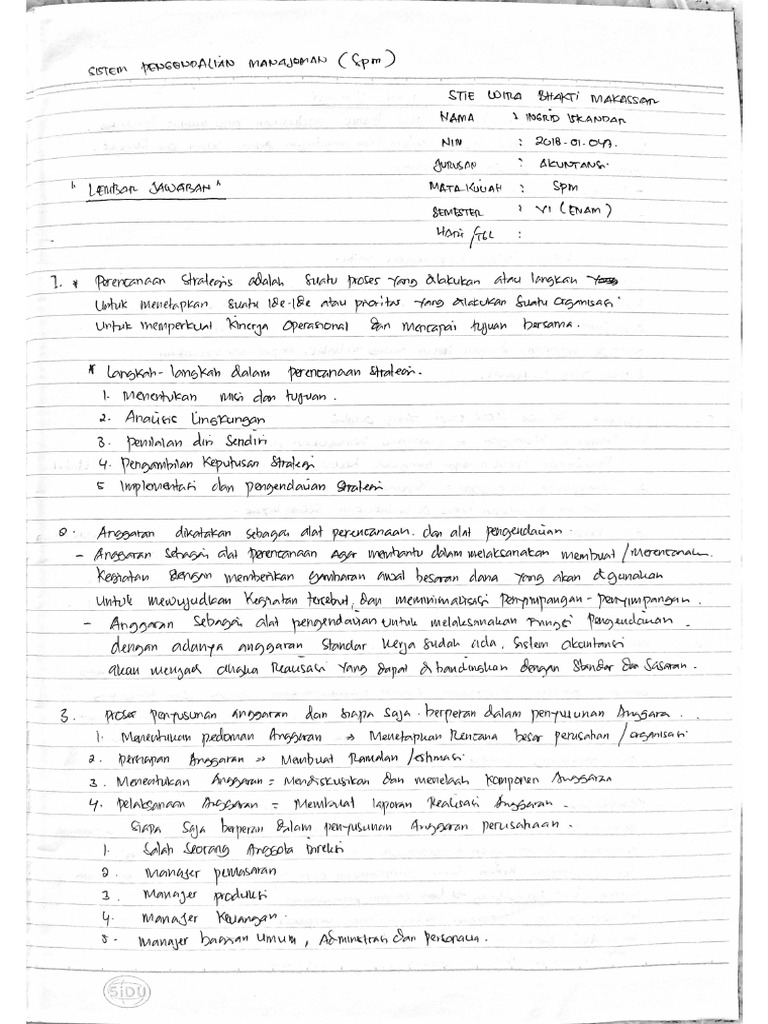 SISTEM PENGENDALIAN MANAJEMEN (SPM)
STIE WIRA BHAKTI MAKASSAR
NAMA : INGRID ISKANDAR
NIM : 2018.01.047.
JURUSAN : AKUNTANSI.
"LEMBAR JAWABAN"
MATA KULIAH : SPM
SEMESTER : VI (ENAM)
HARI/TGL :
1. * Perencanaan Strategis adalah suatu proses yang dilakukan atau langkah
Untuk menetapkan suatu ide-ide atau prioritas yang dilakukan suatu organisasi
Untuk memperkuat kinerja Operasional dan mencapai tujuan bersama.
* Langkah-langkah dalam perencanaan strategi.
1. Menentukan misi dan tujuan.
2. Analisis Lingkungan
3. Penilaian diri Sendiri
4. Pengambilan Keputusan Strategi
5 Implementasi dan pengendalian Strategi
2. Anggaran dikatakan sebagai alat perencanaan dan alat pengendalian.
- Anggaran Sebagai alat perencanaan agar membantu dalam melaksanakan membuat / Merencanakan
Kegiatan dengan memberikan gambaran awal besaran dana yang akan digunakan
Untuk mewujudkan Kegiatan tersebut, dan meminimalisasi Penyimpangan-penyimpangan.
- Anggaran Sebagai alat pengendalian untuk melaksanakan Fungsi Pengendalian.
dengan adanya anggaran Standar Kerja sudah ada, Sistem akuntansi
akan menjadi angka Realisasi yang dapat dibandingkan dengan Standar dan Sasaran.
3. Proses penyusunan anggaran dan siapa saja berperan dalam penyusunan Anggara.
1. Menentukan pedoman Anggaran => Menetapkan Rencana besar perusahan / organisasi
2. persiapan Anggaran => Membuat Ramalan / estimasi
3. Menentukan Anggaran = Mendiskusikan dan menelaah komponen Anggaran
4. pelaksanaan Anggaran = Membuat laporan Realisasi Anggaran.
Siapa Saja berperan dalam penyusunan Anggaran perusahaan.
1. Salah Seorang Anggota Direksi
2. Manajer pemasaran
3. Manajer produksi
4. Manajer Keuangan.
5. Manajer bagian umum, Administrasi dan Personalia.
SIDU